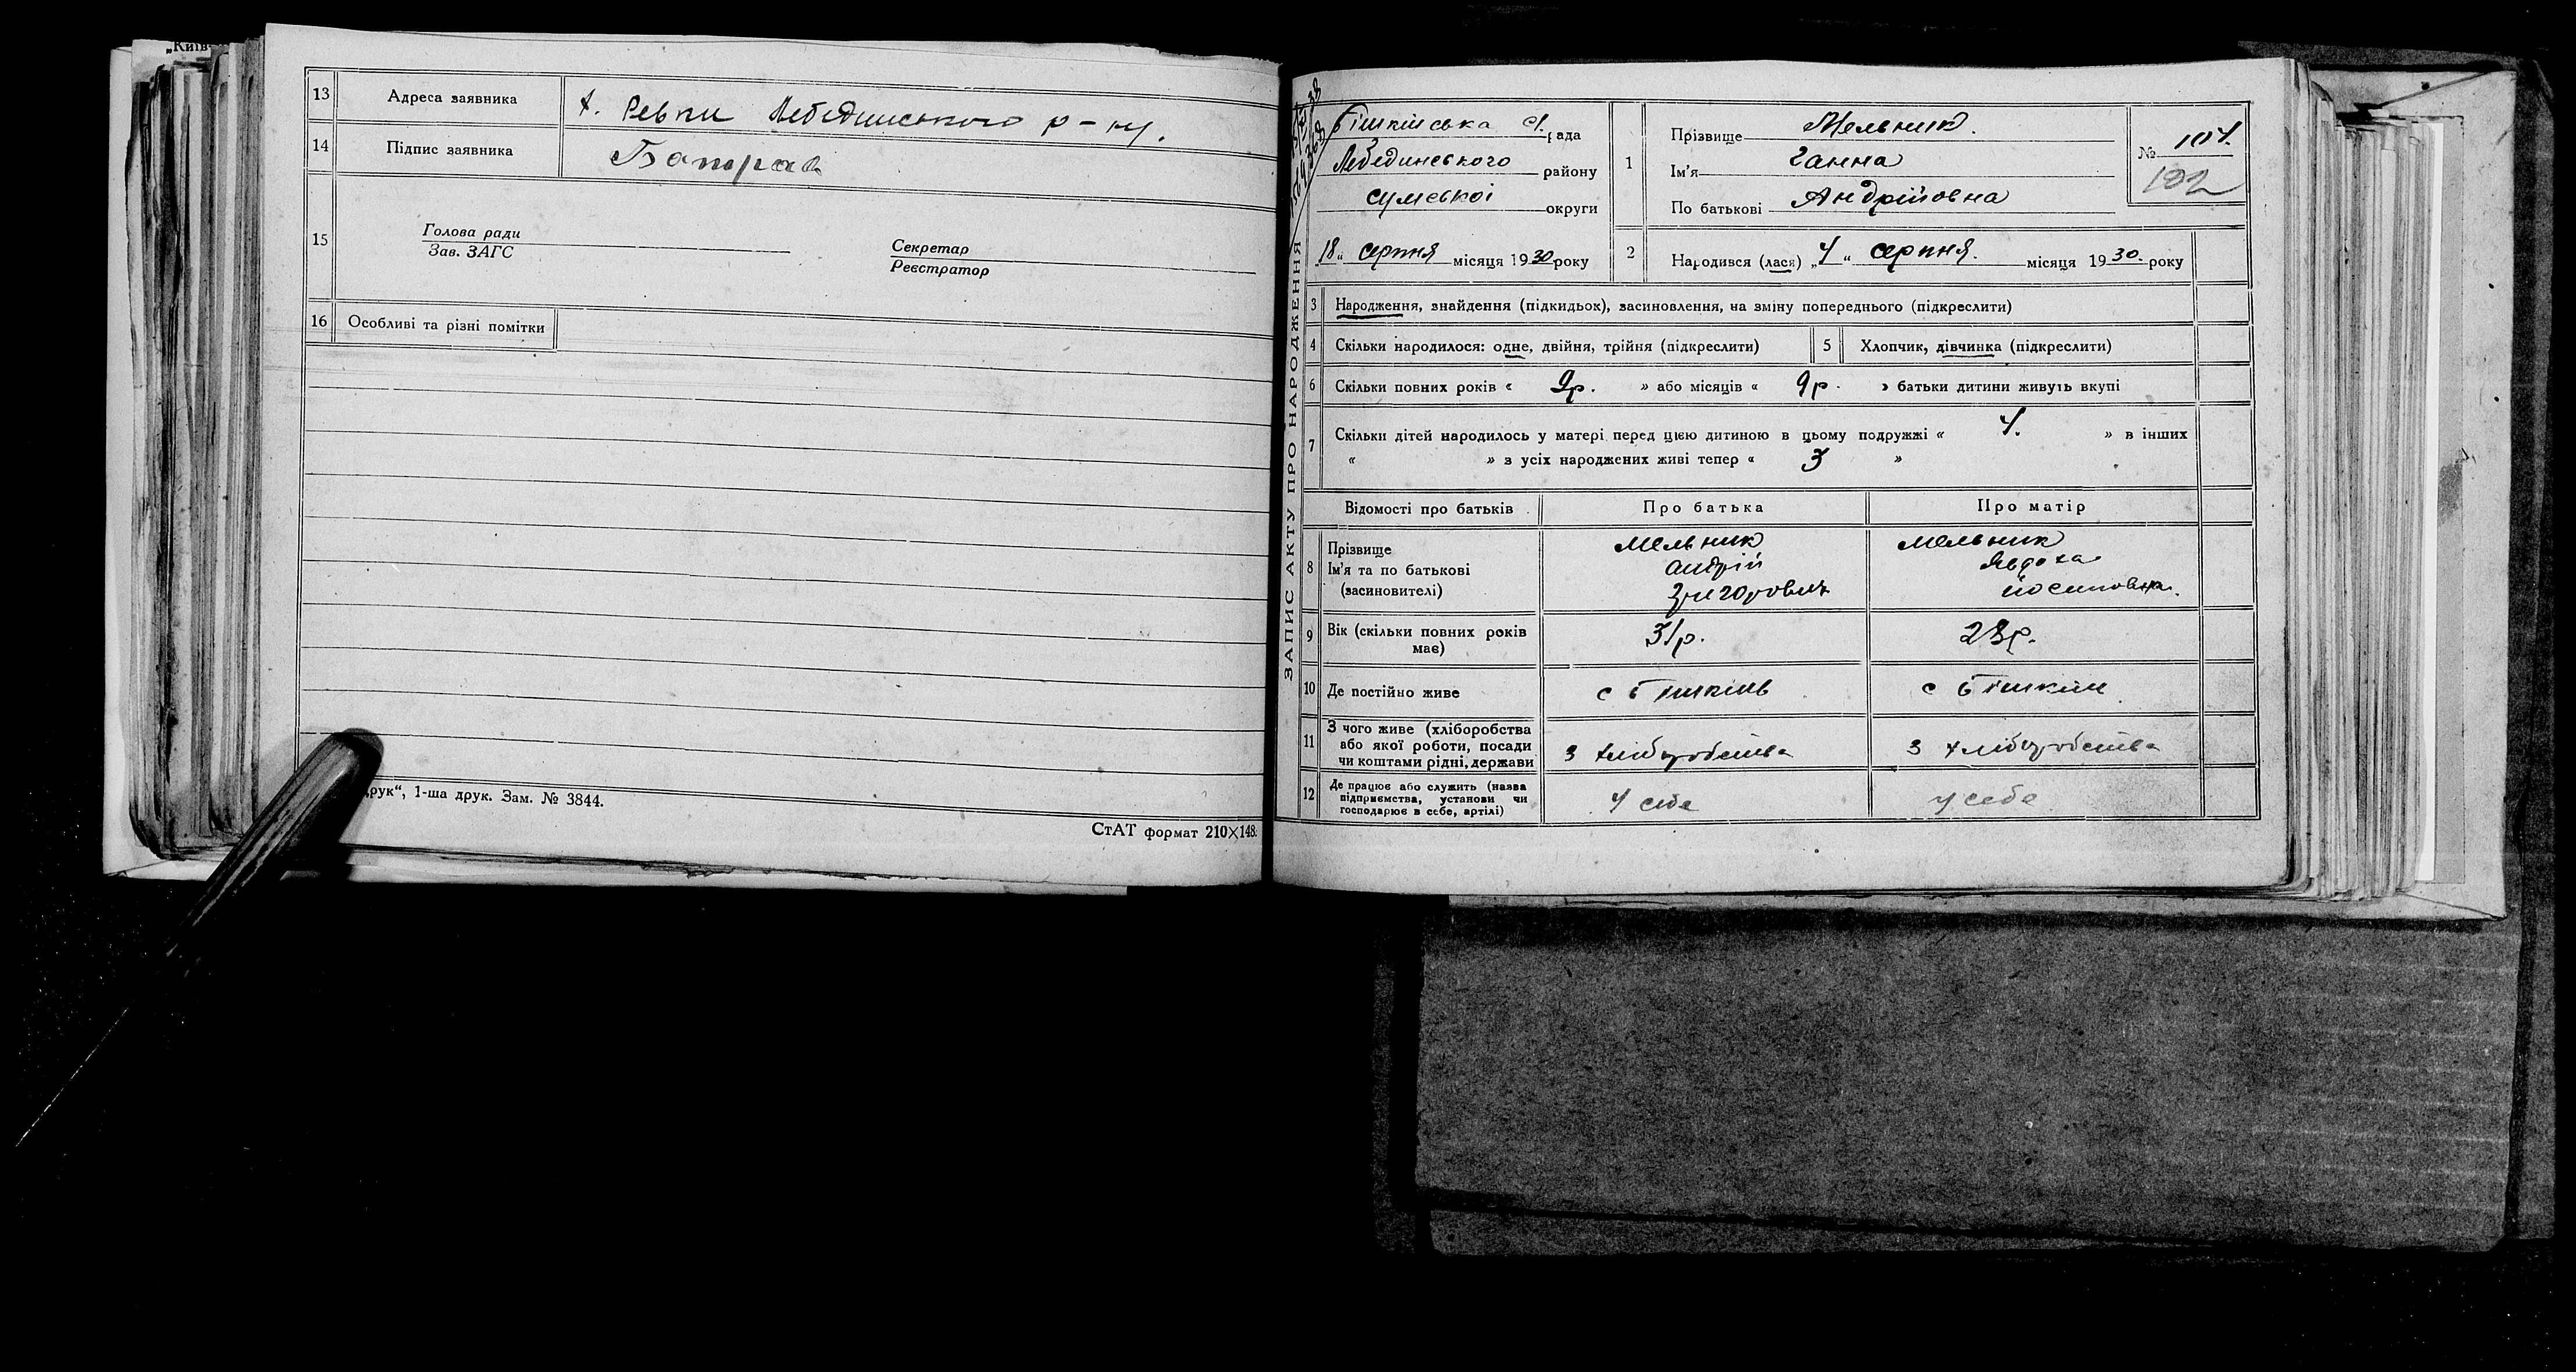 „Київ-
13 Адреса заявника х. Ревки Лебединського р-ну.
14 Підпис заявника Батрак
15 Голова ради
Зав. ЗАГС
Секретар
Реєстратор
16 Особливі та різні помітки
друк“, 1-ша друк. Зам. № 3844.
СтАТ формат 210×148.
ЗАПИС АКТУ ПРО НАРОДЖЕННЯ
Бішкінська с. рада
Лебединського району
сумської округи
18 „ серпня місяця 1930 року
1 Прізвище Мельник.
Ім'я Ганна
По батькові Андрійовна
№ 104.
102
2 Народився (лася) „4“ серпня. місяця 1930. року
3 Народження, знайдення (підкидьок), засиновлення, на зміну попереднього (підкреслити)
4 Скільки народилося: одне, двійня, трійня (підкреслити) 5 Хлопчик, дівчинка (підкреслити)
6 Скільки повних років « 9р. » або місяців « 9р. » батьки дитини живуть вкупі
7 Скільки дітей народилось у матері перед цією дитиною в цьому подружжі « 4. » в інших
« » з усіх народжених живі тепер « 3 »
Відомості про батьків Про батька Про матір
8 Прізвище Мельник Мельник
Ім'я та по батькові Андрій Явдоха
(засиновителі) Григорович Йосиповна.
9 Вік (скільки повних років має) 31р. 28р.
10 Де постійно живе с Бішкінь с Бішкін
11 З чого живе (хліборобства або якої роботи, посади чи коштами рідні, держави з хліборобства з хліборобства
12 Де працює або служить (назва підприємства, установи чи господарює в себе, артілі) у себе у себе